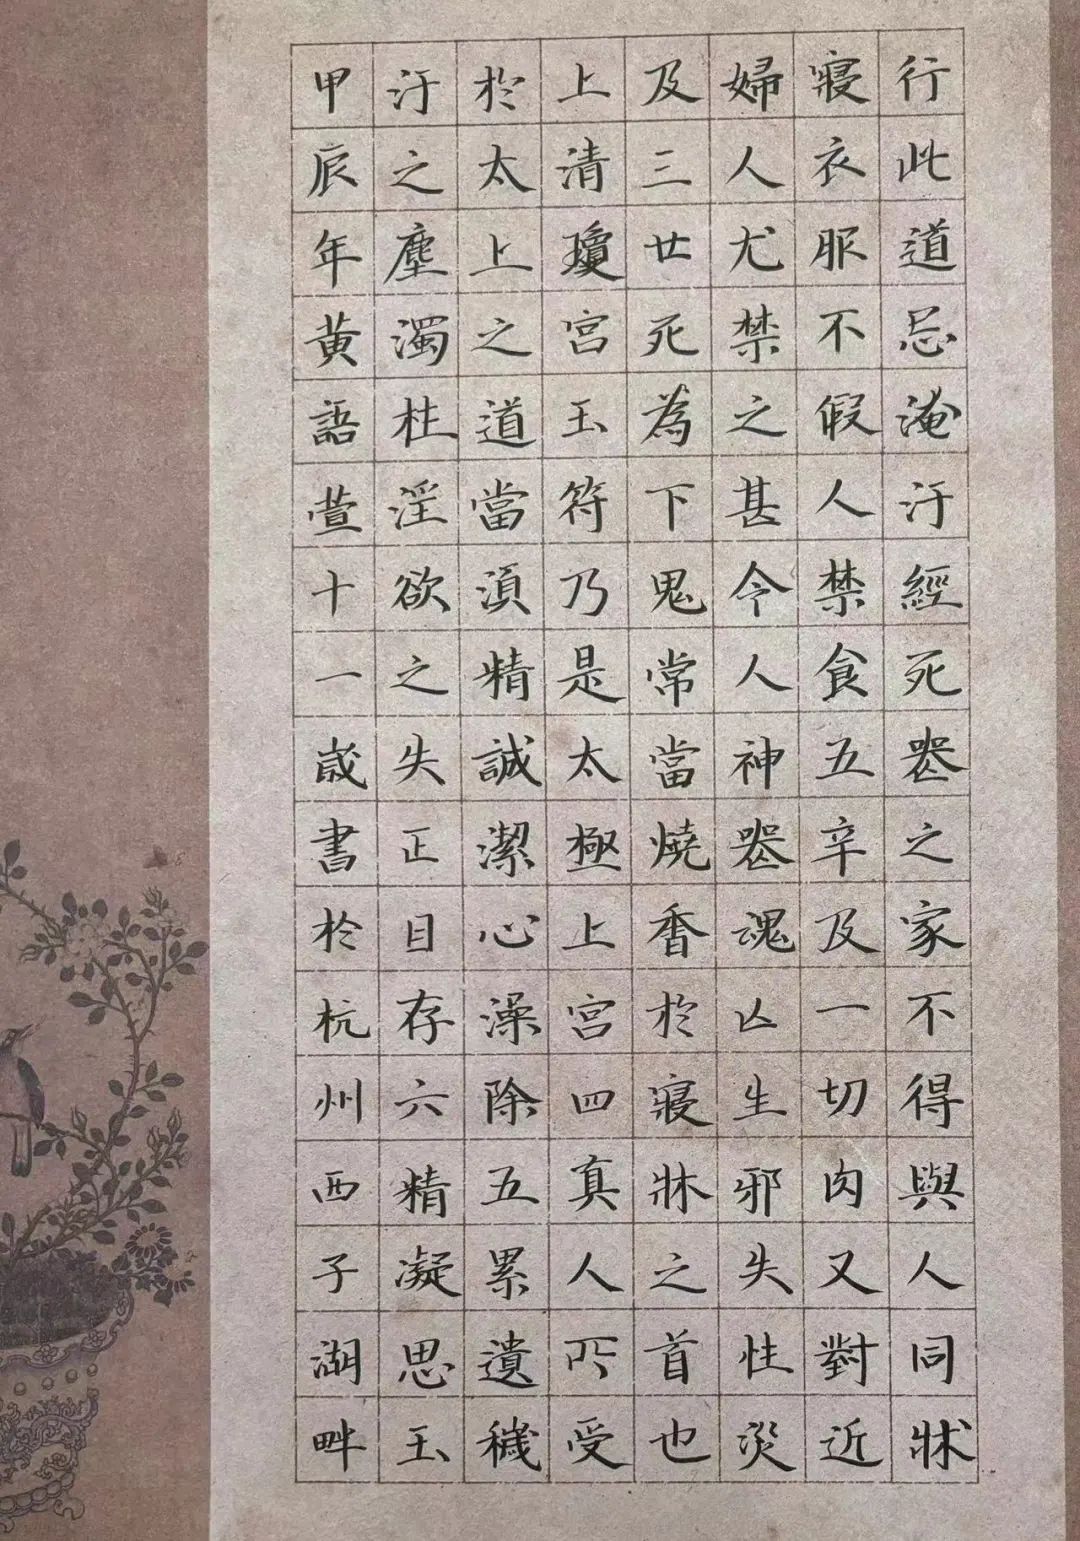 行此道忌淹汙經死喪之家不得與人同牀
寢衣服不假人禁食五辛及一切肉又對近
婦人尤禁之甚令人神喪魂亡生邪失性災
及三廿死為下鬼常當燒香於寢牀之首也
上清瓊宮玉符乃是太極上宮四真人所受
於太上之道當須精誠潔心澡除五累遺穢
汙之塵濁杜淫欲之失正目存六精凝思玉
甲辰年黃語萱十一歲書於杭州西子湖畔